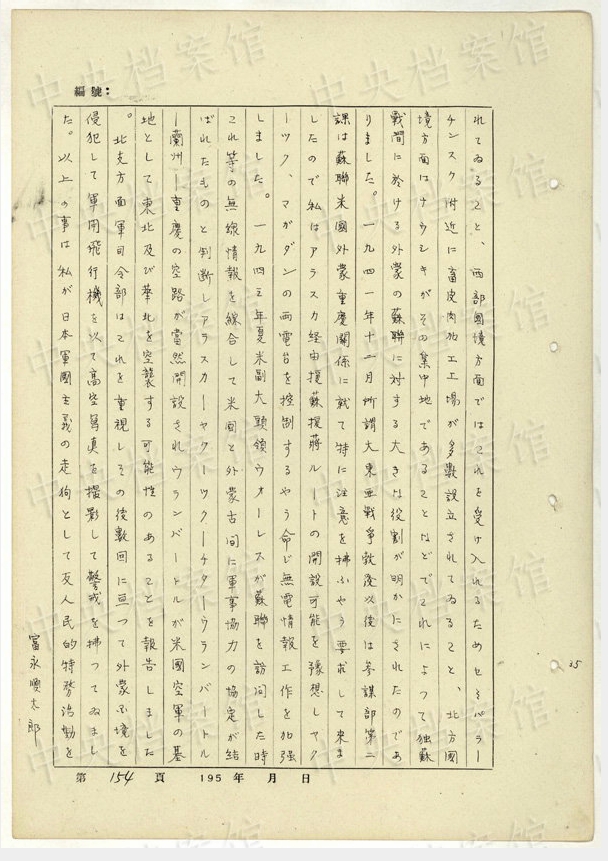 編號：
れてゐること、西部國境方面ではこれを受け入れるためセミパラー
チンスク附近に畜皮肉加工工場が多數設立されてゐること、北方國
境方面はナウシキがその集中地であることなどでこれによつて独蘇
戰間に於ける外蒙の蘇聯に対する大きな役割が明かにされたのであ
りました。一九四一年十二月所謂大東亜戰爭勃發以後は参謀部第二
課は蘇聯米國外蒙重慶関係に就て特に注意を拂ふやう要求して来ま
したので私はアラスカ経由援蘇援蔣ルートの開設可能を豫想しヤク
ーツク、マガダンの両電台を控制するやう命じ無電情報工作を加強
しました。一九四三年夏米副大頭領ウォーレスが蘇聯を訪问した時
これ等の無線情報を綜合して米國と外蒙古间に軍事協力の協定が結
ばれたものと判断しアラスカーヤクーツクーチターウランバートル
ー蘭州ー重慶の空路が當然開設されウランバートルが米國空軍の基
地として東北及び華北を空襲する可能性のあることを報告しました
。北支方面軍司令部はこれを重視しその後數回に亘つて外蒙古境を
侵犯して軍用飛行機を以て高空寫真を撮影して警戒を拂つてゐまし
た。以上の事は私が日本軍國主義の走狗として反人民的特務活動を
富永順太郎
25
第 154 頁 195 年 月 日
中央档案馆